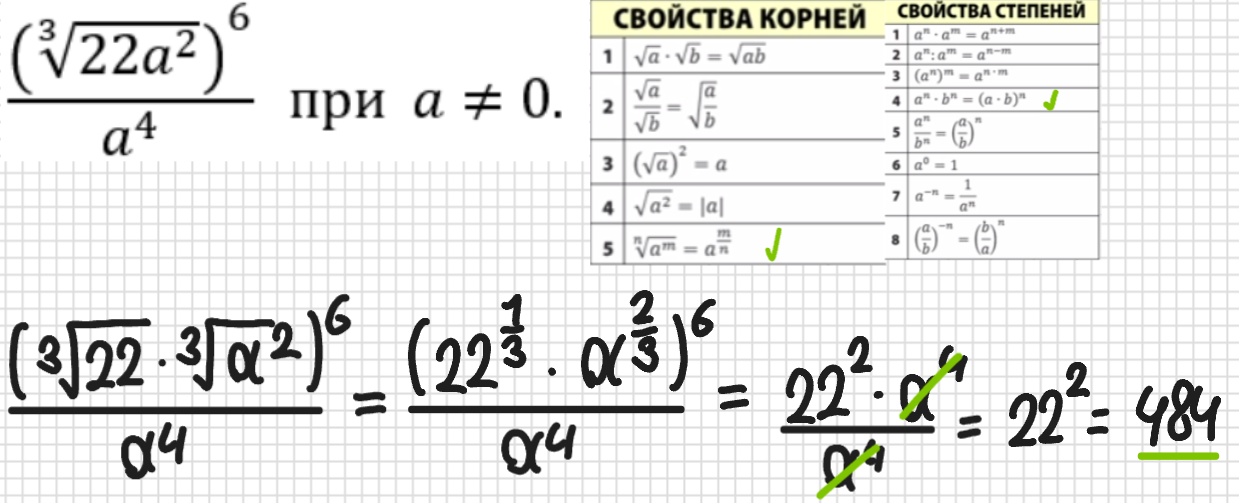 (∛22a²)⁶ / a⁴ при a ≠ 0.
СВОЙСТВА КОРНЕЙ
1 √a · √b = √ab
2 √a / √b = √(a/b)
3 (√a)² = a
4 √a² = |a|
5 ⁿ√aᵐ = a^(m/n) ✓
СВОЙСТВА СТЕПЕНЕЙ
1 aⁿ · aᵐ = aⁿ⁺ᵐ
2 aⁿ : aᵐ = aⁿ⁻ᵐ
3 (aⁿ)ᵐ = aⁿ·ᵐ
4 aⁿ · bⁿ = (a · b)ⁿ ✓
5 aⁿ / bⁿ = (a/b)ⁿ
6 a⁰ = 1
7 a⁻ⁿ = 1/aⁿ
8 (a/b)⁻ⁿ = (b/a)ⁿ
(∛22 · ∛a²)⁶ / a⁴ = (22^(1/3) · a^(2/3))⁶ / a⁴ = 22² · a⁴ / a⁴ = 22² = 484